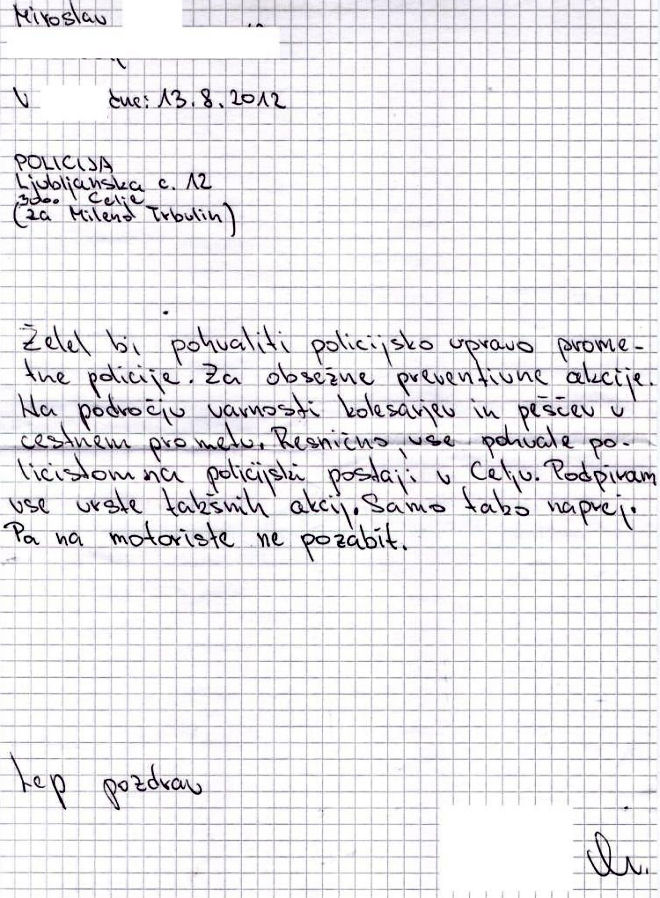 Miroslav
V dne: 13.8.2012
POLICIJA
Ljubljanska c. 12
3000 Celje
(za Milend Trbulin)
Želel bi pohvaliti policijsko upravo prome-
tne policije. Za obsežne preventivne akcije.
Na področju varnosti kolesarjev in pešcev v
cestnem prometu. Resnično, vse pohvale po-
licistom na policijski postaji v Celju. Podpiram
vse vrste takšnih akcij. Samo tako naprej.
Pa na motoriste ne pozabit.
Lep pozdrav